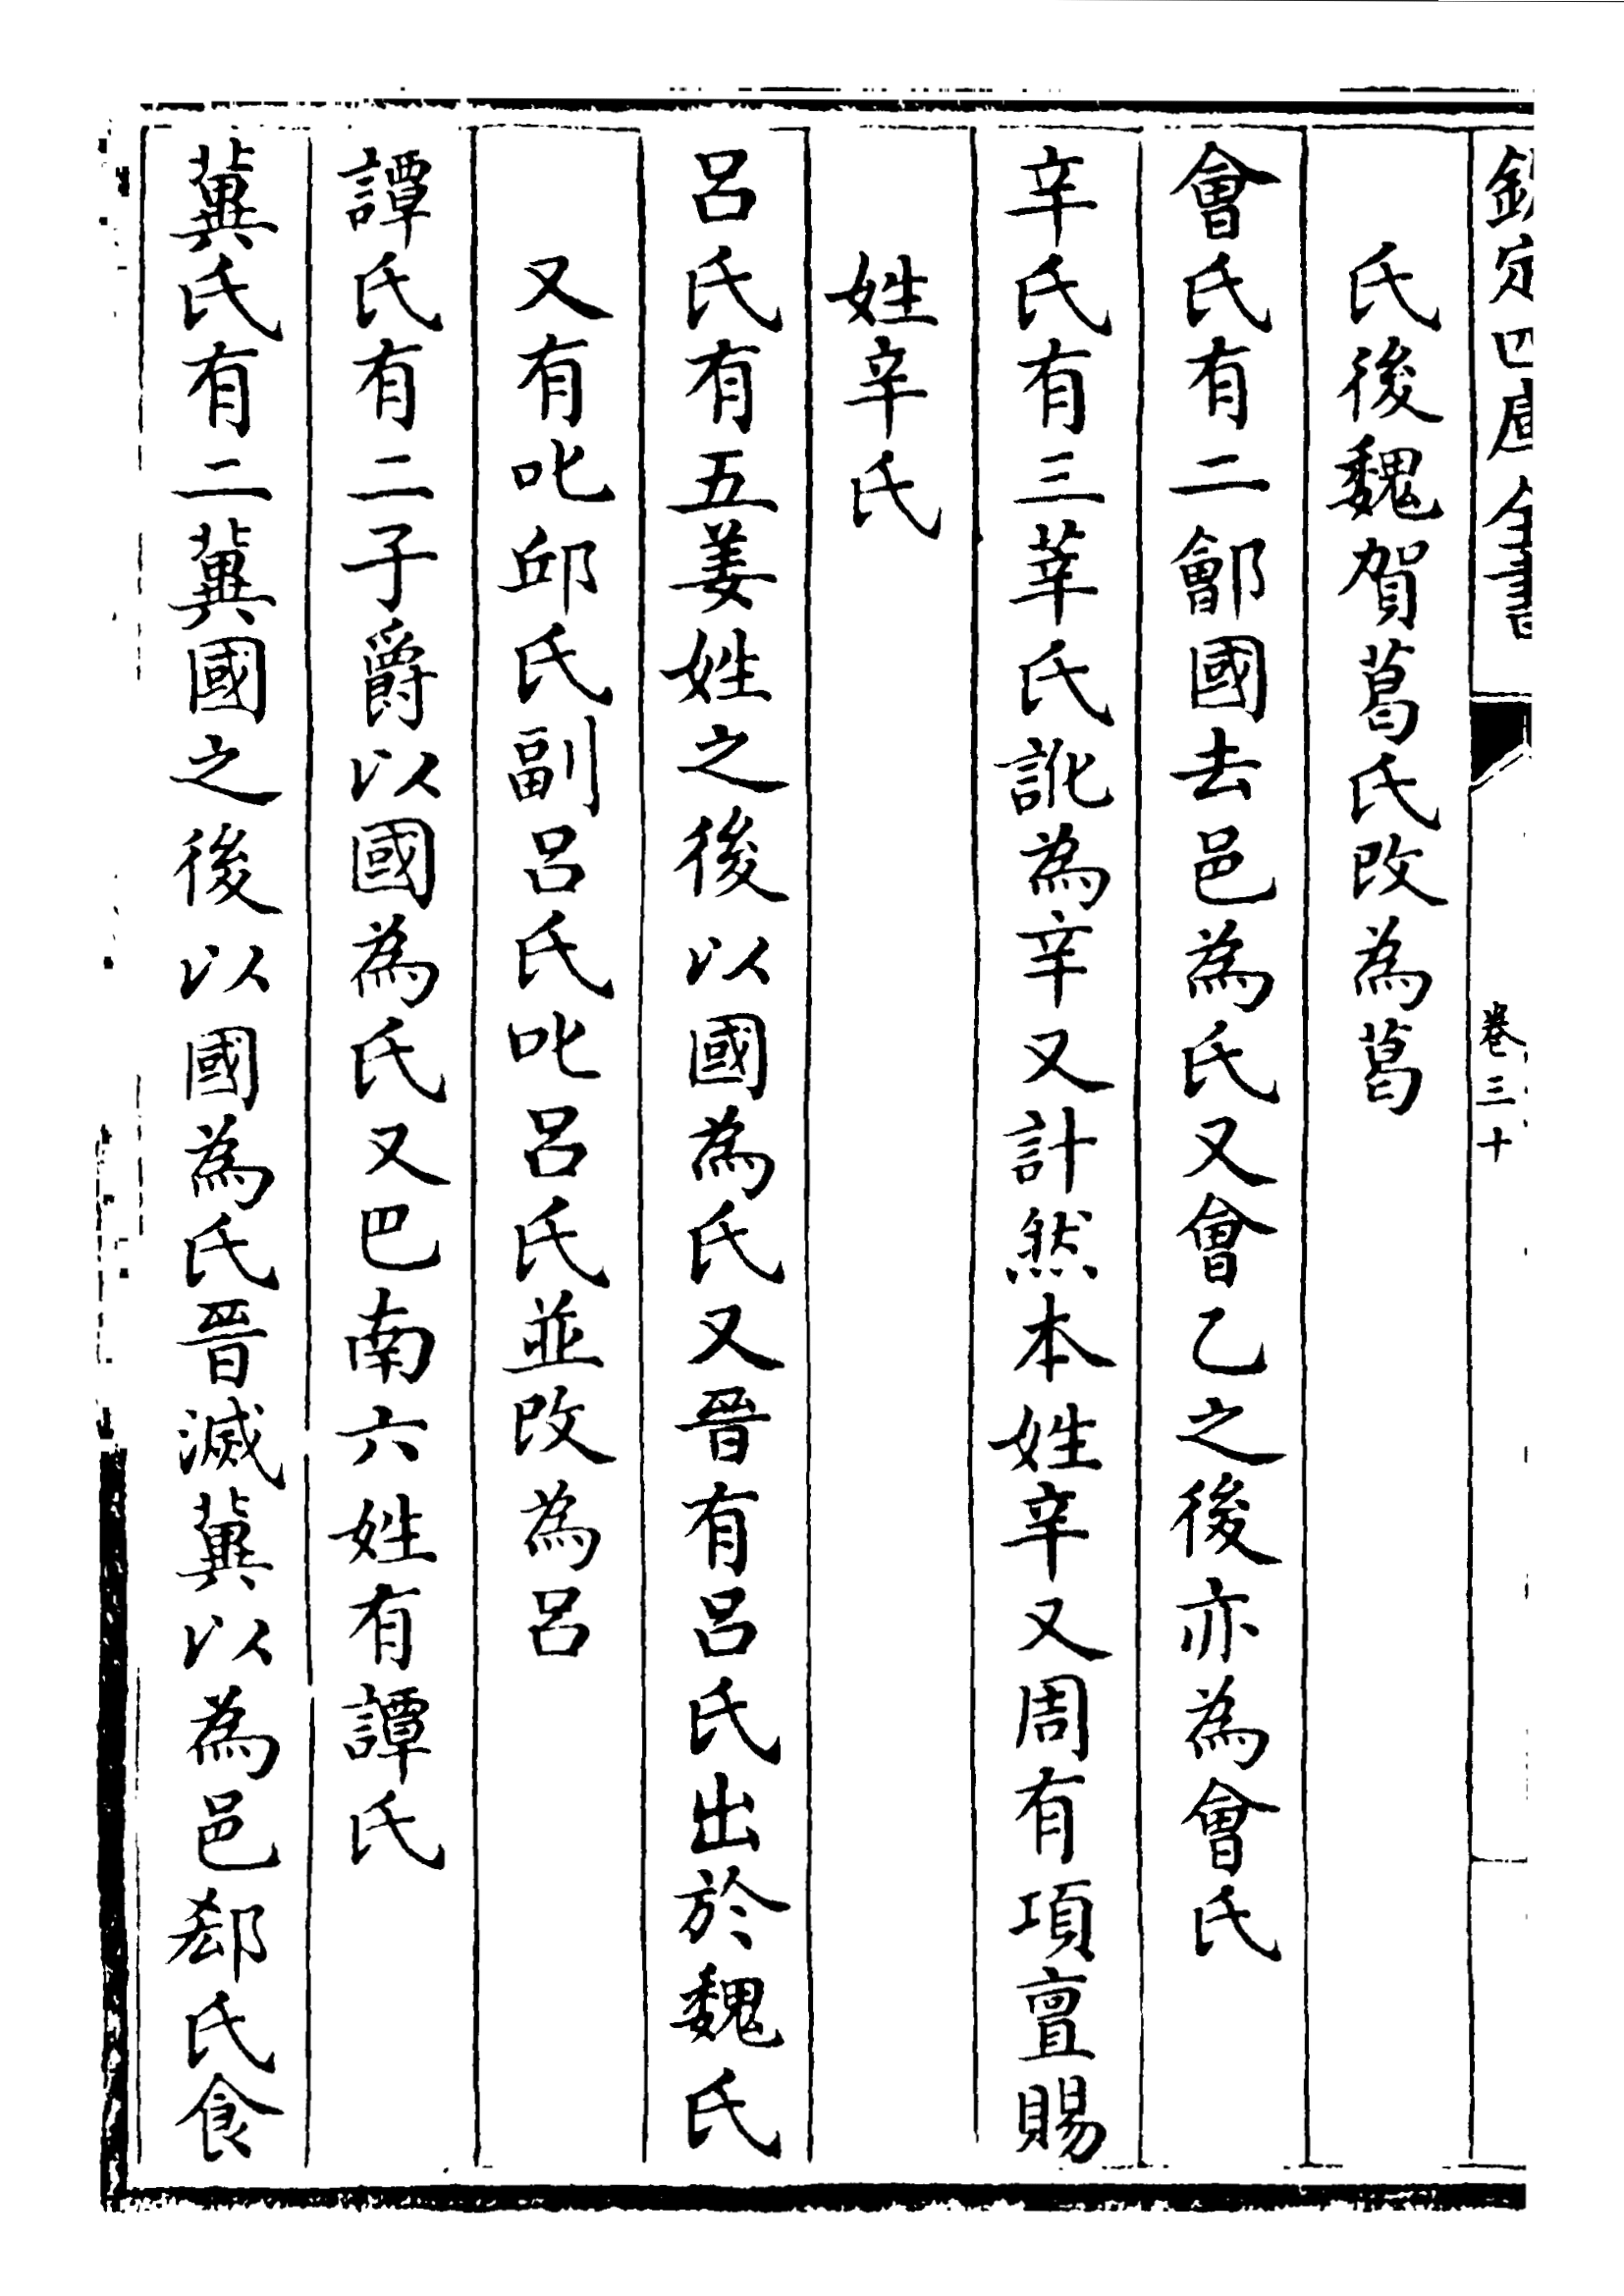 欽定四庫全書
卷三十
氏後魏賀葛氏改為葛
會氏有二鄶國去邑為氏又會乙之後亦為會氏
辛氏有三莘氏訛為辛又計然本姓辛又周有項亶賜
姓辛氏
呂氏有五姜姓之後以國為氏又晉有呂氏出於魏氏
又有叱邱氏副呂氏叱呂氏並改為呂
譚氏有二子爵以國為氏又巴南六姓有譚氏
冀氏有二冀國之後以國為氏晉滅冀以為邑郄氏食